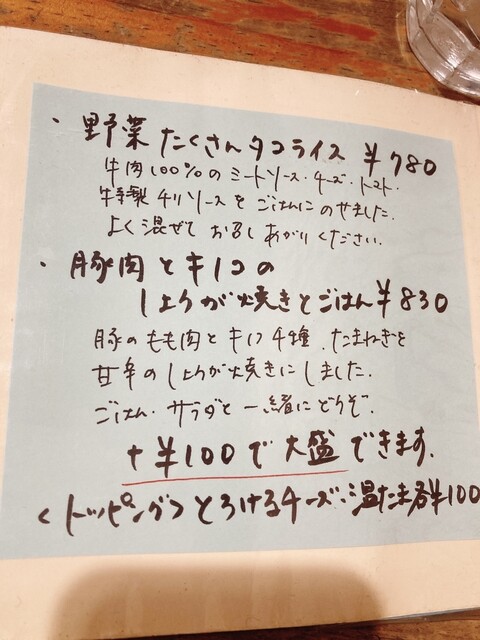 ・野菜たくさんタコライス ¥780
牛肉100%のミートソース・チーズ・トマト・
特製チリソースをごはんにのせました。
よく混ぜてお召しあがりください。
・豚肉とキノコの
しょうが焼きとごはん¥830
豚のもも肉とキノコ4種、たまねぎを
甘辛のしょうが焼きにしました。
ごはん・サラダと一緒にどうぞ。
+¥100で大盛できます。
<トッピング>とろけるチーズ・温たま各¥100